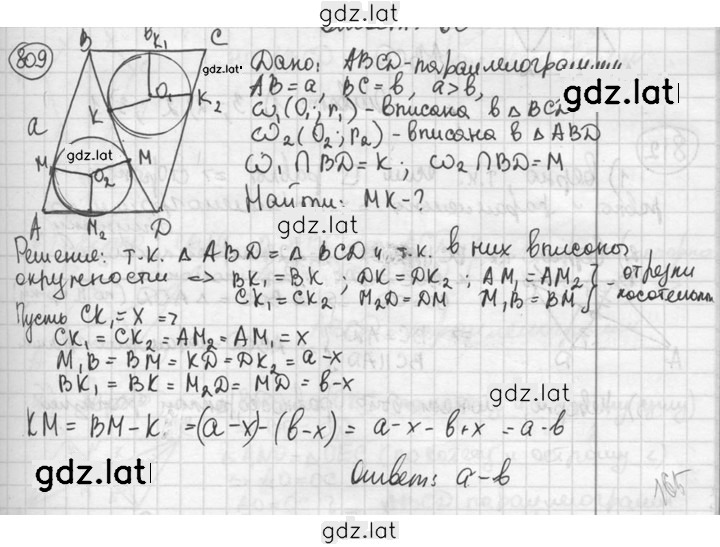 gdz.lat
809
B K₁ C
gdz.lat
O₁
K K₂
a
M gdz.lat M
O₂
A M₂ D
Дано: ABCD - параллелограмм
AB = a, BC = b, a > b,
gdz.lat
ω₁(O₁; r₁) - вписана в △ BCD
ω₂(O₂; r₂) - вписана в △ ABD
ω₁ ∩ BD = K; ω₂ ∩ BD = M
Найти: MK - ?
gdz.lat
Решение: т.к. △ ABD = △ BCD и т.к. в них вписаны
окружности => BK₁ = BK; DK = DK₂; AM₁ = AM₂ } - отрезки
CK₁ = CK₂ M₂D = DM M₁B = BM касательн
Пусть CK₁ = x =>
CK₁ = CK₂ = AM₂ = AM₁ = x
M₁B = BM = KD = DK₂ = a - x
BK₁ = BK = M₂D = MD = b - x
gdz.lat
KM = BM - K = (a - x) - (b - x) = a - x - b + x = a - b
gdz.lat
Ответ: a - b
165
gdz.lat